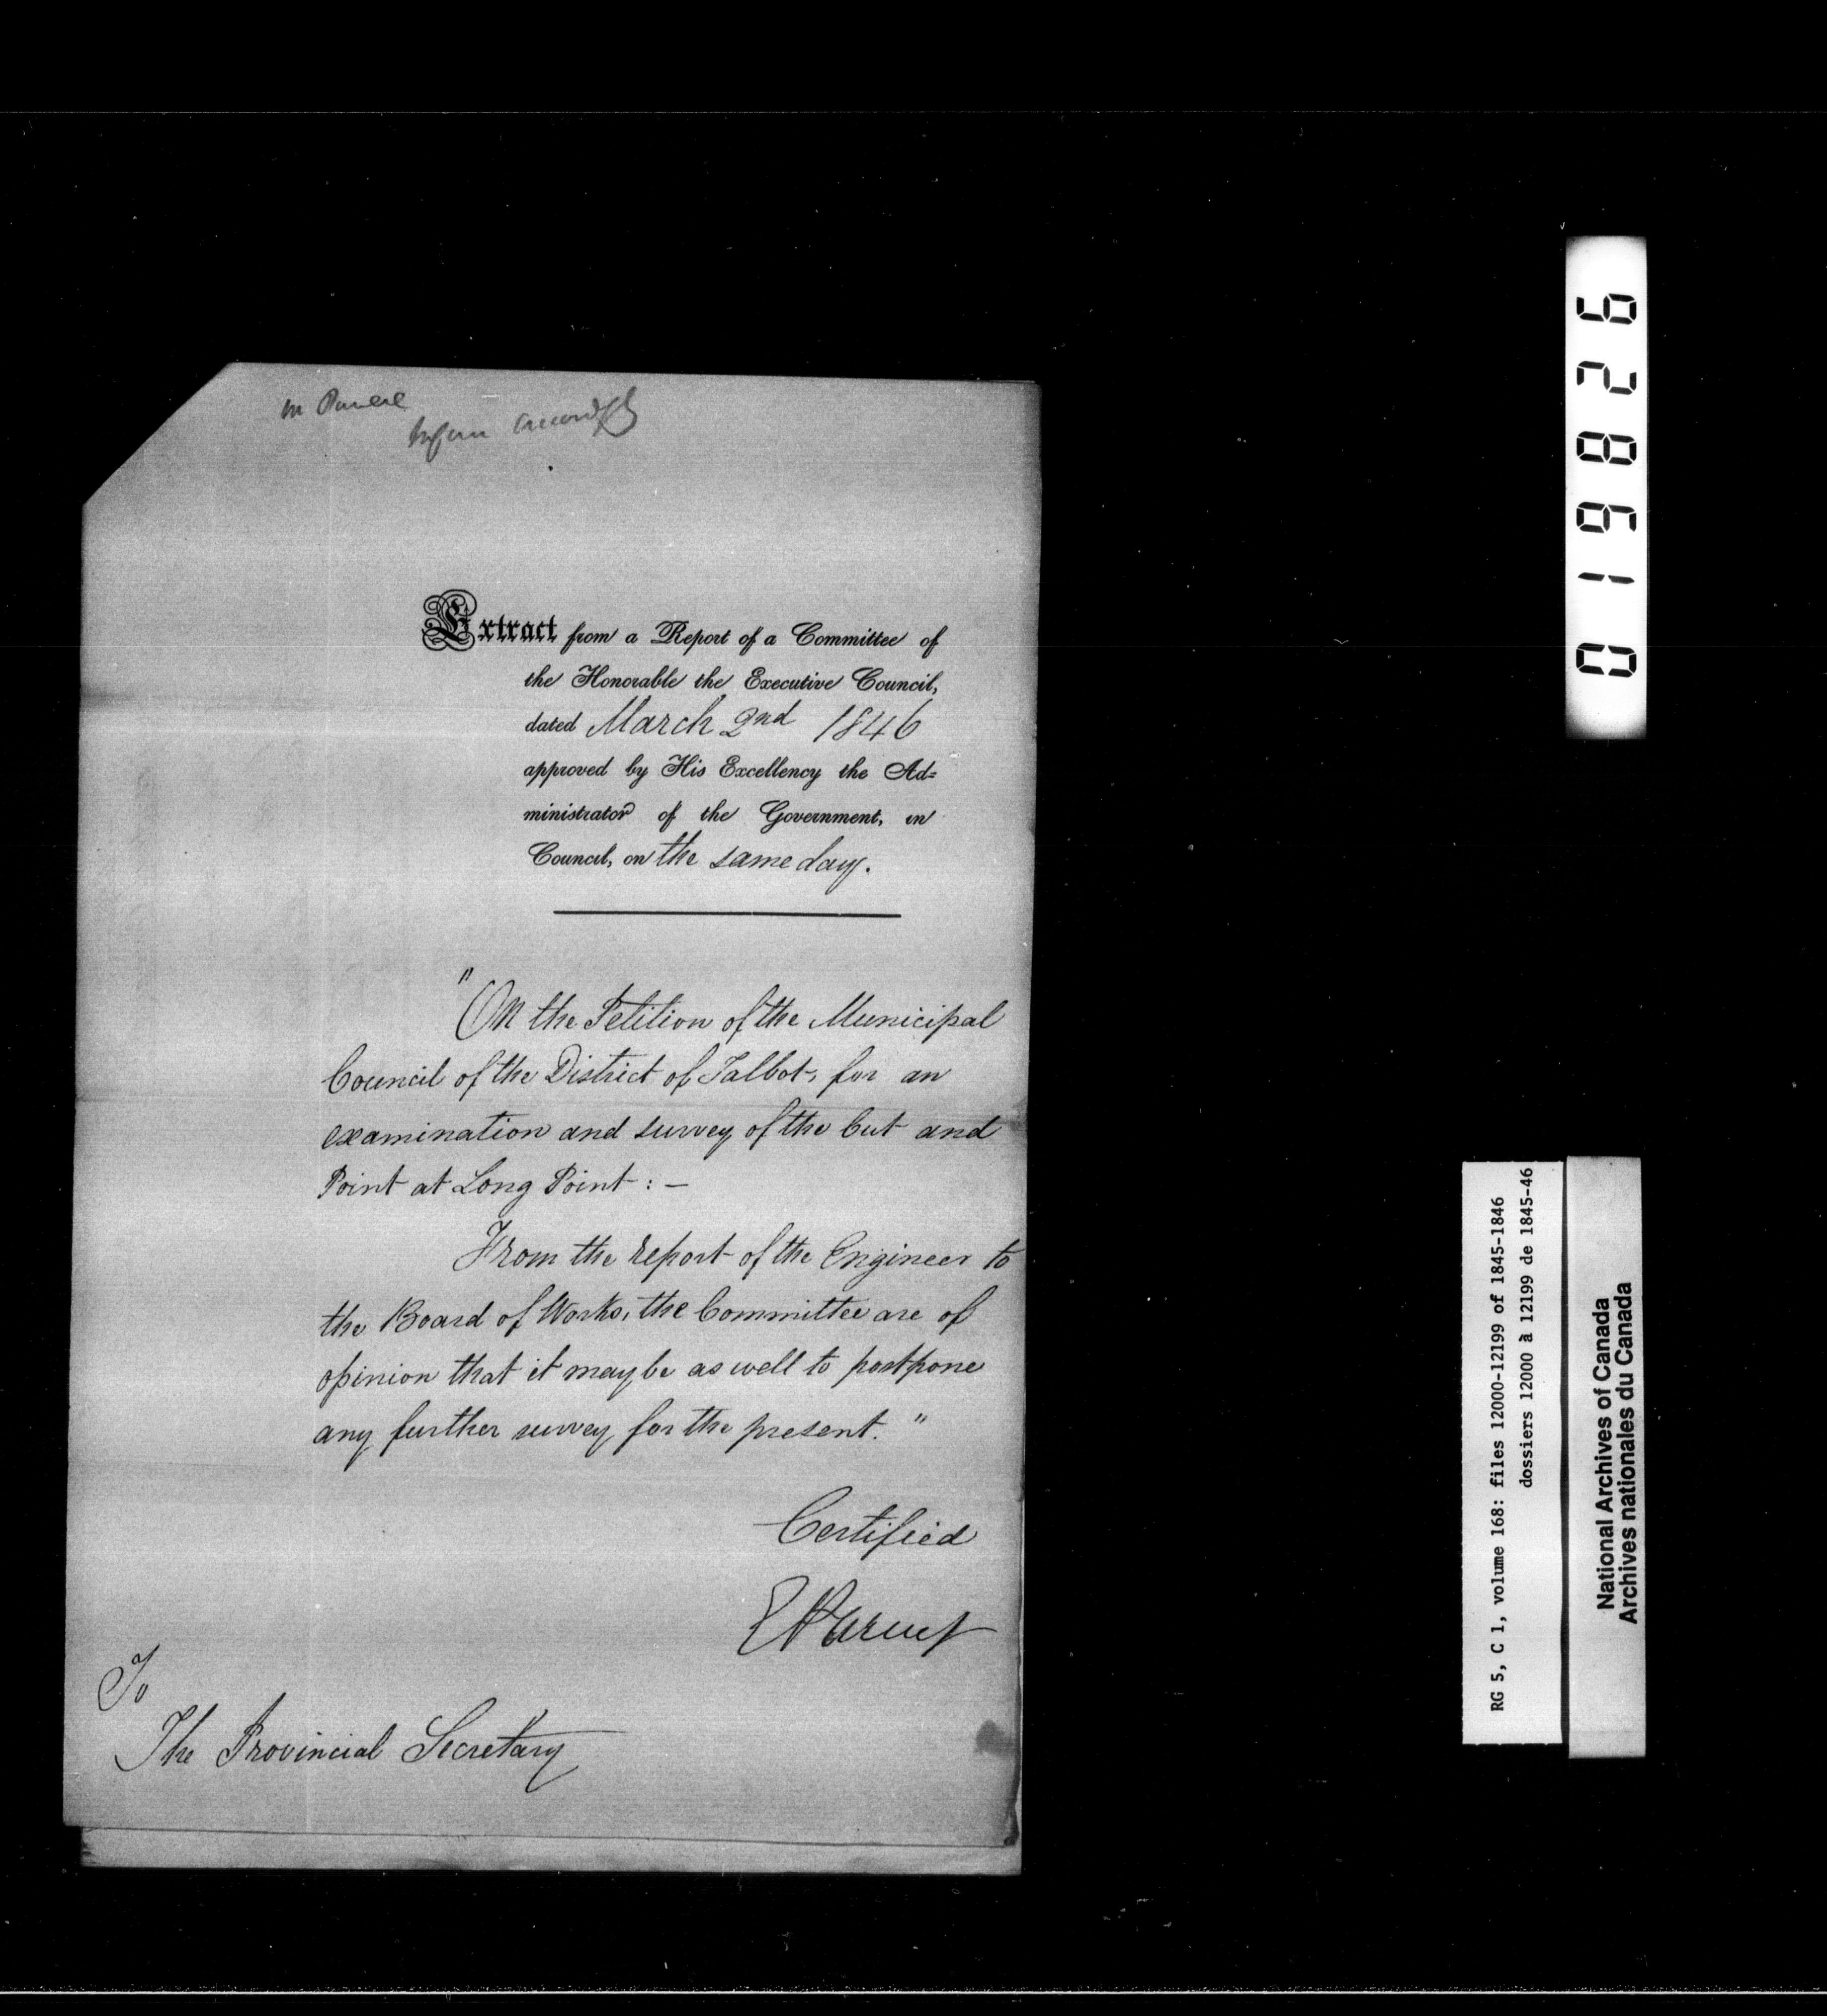 Extract from a Report of a Committee of
the Honorable the Executive Council,
dated March 2nd 1846
approved by His Excellency the Ad=
ministrator of the Government, in
Council, on the same day.
"On the Petition of the Municipal
Council of the District of Talbot, for an
examination and survey of the Cut and
Point at Long Point : —
From the report of the Engineer to
the Board of Works, the Committee are of
opinion that it may be as well to postpone
any further survey for the present."
Certified
To
The Provincial Secretary
019826
RG 5, C 1, volume 168: files 12000-12199 of 1845-1846
dossiers 12000 à 12199 de 1845-46
National Archives of Canada
Archives nationales du Canada